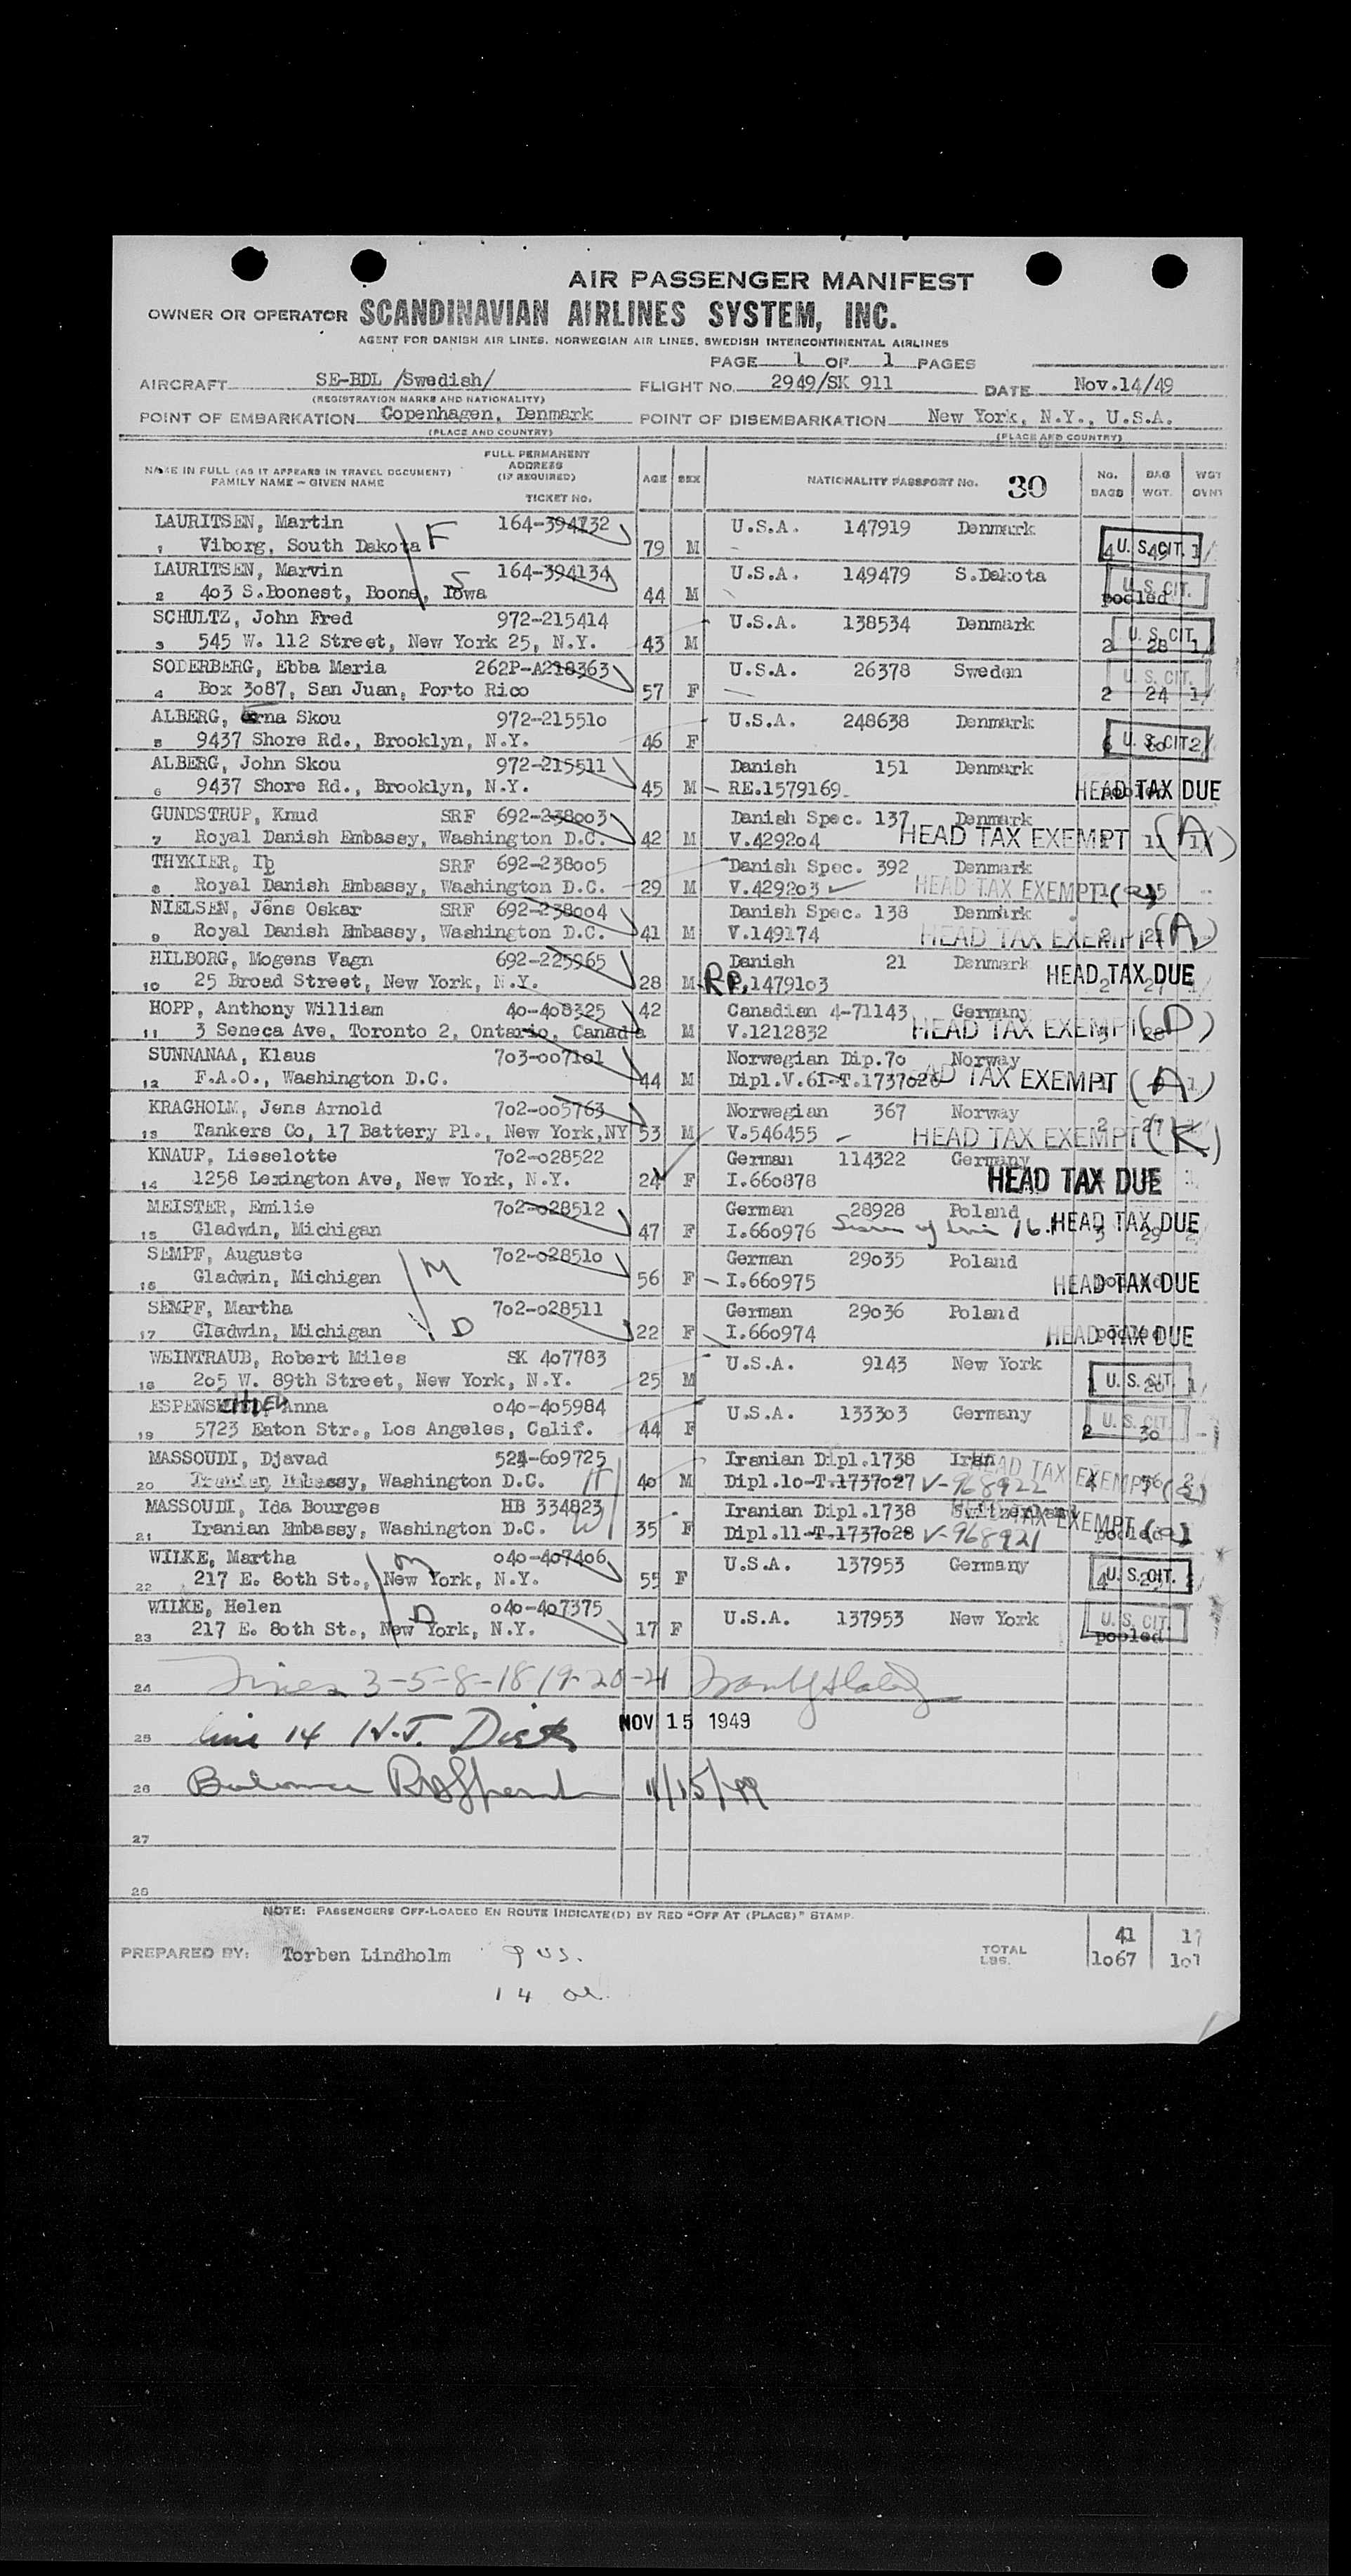 AIR PASSENGER MANIFEST
OWNER OR OPERATOR SCANDINAVIAN AIRLINES SYSTEM, INC.
AGENT FOR DANISH AIR LINES, NORWEGIAN AIR LINES, SWEDISH INTERCONTINENTAL AIRLINES
PAGE 1 OF 1 PAGES
AIRCRAFT SE-BDL /Swedish/ FLIGHT NO. 2949/SK 911 DATE Nov.14/49
(REGISTRATION MARKS AND NATIONALITY)
POINT OF EMBARKATION Copenhagen, Denmark POINT OF DISEMBARKATION New York, N.Y., U.S.A.
(PLACE AND COUNTRY) (PLACE AND COUNTRY)
NAME IN FULL (AS IT APPEARS IN TRAVEL DOCUMENT) FAMILY NAME - GIVEN NAME FULL PERMANENT ADDRESS (IF REQUIRED) TICKET NO. AGE SEX NATIONALITY PASSPORT NO. 30 NO. BAGS BAG WGT. WGT OVWT
LAURITSEN, Martin 164-394732 U.S.A. 147919 Denmark
1 Viborg, South Dakota F 79 M 4 U. S. CIT. 1
LAURITSEN, Marvin 164-394134 U.S.A. 149479 S.Dakota U. S. CIT.
2 403 S.Boonest, Boone, Iowa S 44 M pooled
SCHULTZ, John Fred 972-215414 U.S.A. 138534 Denmark U. S. CIT.
3 545 W. 112 Street, New York 25, N.Y. 43 M 2 28 1
SODERBERG, Ebba Maria 262P-A218363 U.S.A. 26378 Sweden U. S. CIT.
4 Box 3087, San Juan, Porto Rico 57 F 2 24 1
ALBERG, Erna Skou 972-215510 U.S.A. 248638 Denmark
5 9437 Shore Rd., Brooklyn, N.Y. 46 F U. S. CIT. 2
ALBERG, John Skou 972-215511 Danish 151 Denmark
6 9437 Shore Rd., Brooklyn, N.Y. 45 M RE.1579169 HEAD TAX DUE
GUNDSTRUP, Knud SRF 692-238003 Danish Spec. 137 Denmark
7 Royal Danish Embassy, Washington D.C. 42 M V.429204 HEAD TAX EXEMPT (A)
THYKIER, Ib SRF 692-238005 Danish Spec. 392 Denmark
8 Royal Danish Embassy, Washington D.C. 29 M V.429203 HEAD TAX EXEMPT (a)
NIELSEN, Jens Oskar SRF 692-238004 Danish Spec. 138 Denmark
9 Royal Danish Embassy, Washington D.C. 41 M V.149174 HEAD TAX EXEMPT (A)
HILBORG, Mogens Vagn 692-225965 Danish 21 Denmark
10 25 Broad Street, New York, N.Y. 28 M RP.1479103 HEAD TAX DUE
HOPP, Anthony William 40-408325 42 Canadian 4-71143 Germany
11 3 Seneca Ave, Toronto 2, Ontario, Canada M V.1212832 HEAD TAX EXEMPT (D)
SUNNANAA, Klaus 703-007101 Norwegian Dip.70 Norway
12 F.A.O., Washington D.C. 44 M Dipl.V.61-T.1737026 HEAD TAX EXEMPT (A)
KRAGHOLM, Jens Arnold 702-005763 Norwegian 367 Norway
13 Tankers Co, 17 Battery Pl., New York,NY 53 M V.546455 HEAD TAX EXEMPT (K)
KNAUP, Lieselotte 702-028522 German 114322 Germany
14 1258 Lexington Ave, New York, N.Y. 24 F I.660878 HEAD TAX DUE
MEISTER, Emilie 702-028512 German 28928 Poland
15 Gladwin, Michigan 47 F I.660976 HEAD TAX DUE
SEMPF, Auguste M 702-028510 German 29035 Poland
16 Gladwin, Michigan 56 F I.660975 HEAD TAX DUE
SEMPF, Martha 702-028511 German 29036 Poland
17 Gladwin, Michigan D 22 F I.660974 HEAD TAX DUE
WEINTRAUB, Robert Miles SK 407783 U.S.A. 9143 New York
18 205 W. 89th Street, New York, N.Y. 25 M U. S. CIT.
Anna 040-405984 U.S.A. 133303 Germany U. S. CIT.
19 5723 Eaton Str., Los Angeles, Calif. 44 F 2 30
MASSOUDI, Djavad 524-609725 Iranian Dipl.1738 Iran
20 Embassy, Washington D.C. H 40 M Dipl.10-T.1737027 V-968922 HEAD TAX EXEMPT
MASSOUDI, Ida Bourges HB 334823 Iranian Dipl.1738 Switzerland
21 Iranian Embassy, Washington D.C. W 35 F Dipl.11-T.1737028 V-968921 TAX EXEMPT (a)
WILKE, Martha M 040-407406 U.S.A. 137953 Germany
22 217 E. 80th St., New York, N.Y. 55 F 4 U. S. CIT.
WILKE, Helen D 040-407375 U.S.A. 137953 New York U. S. CIT.
23 217 E. 80th St., New York, N.Y. 17 F pooled
24 Lines 3-5-8-18-19-20-21
25 line 14 H.J. NOV 15 1949
26 Balance 11/15/49
27
28
NOTE: PASSENGERS OFF-LOADED EN ROUTE INDICATE(D) BY RED "OFF AT (PLACE)" STAMP.
PREPARED BY: Torben Lindholm 9 us. TOTAL LBS. 41 1067
14 al.